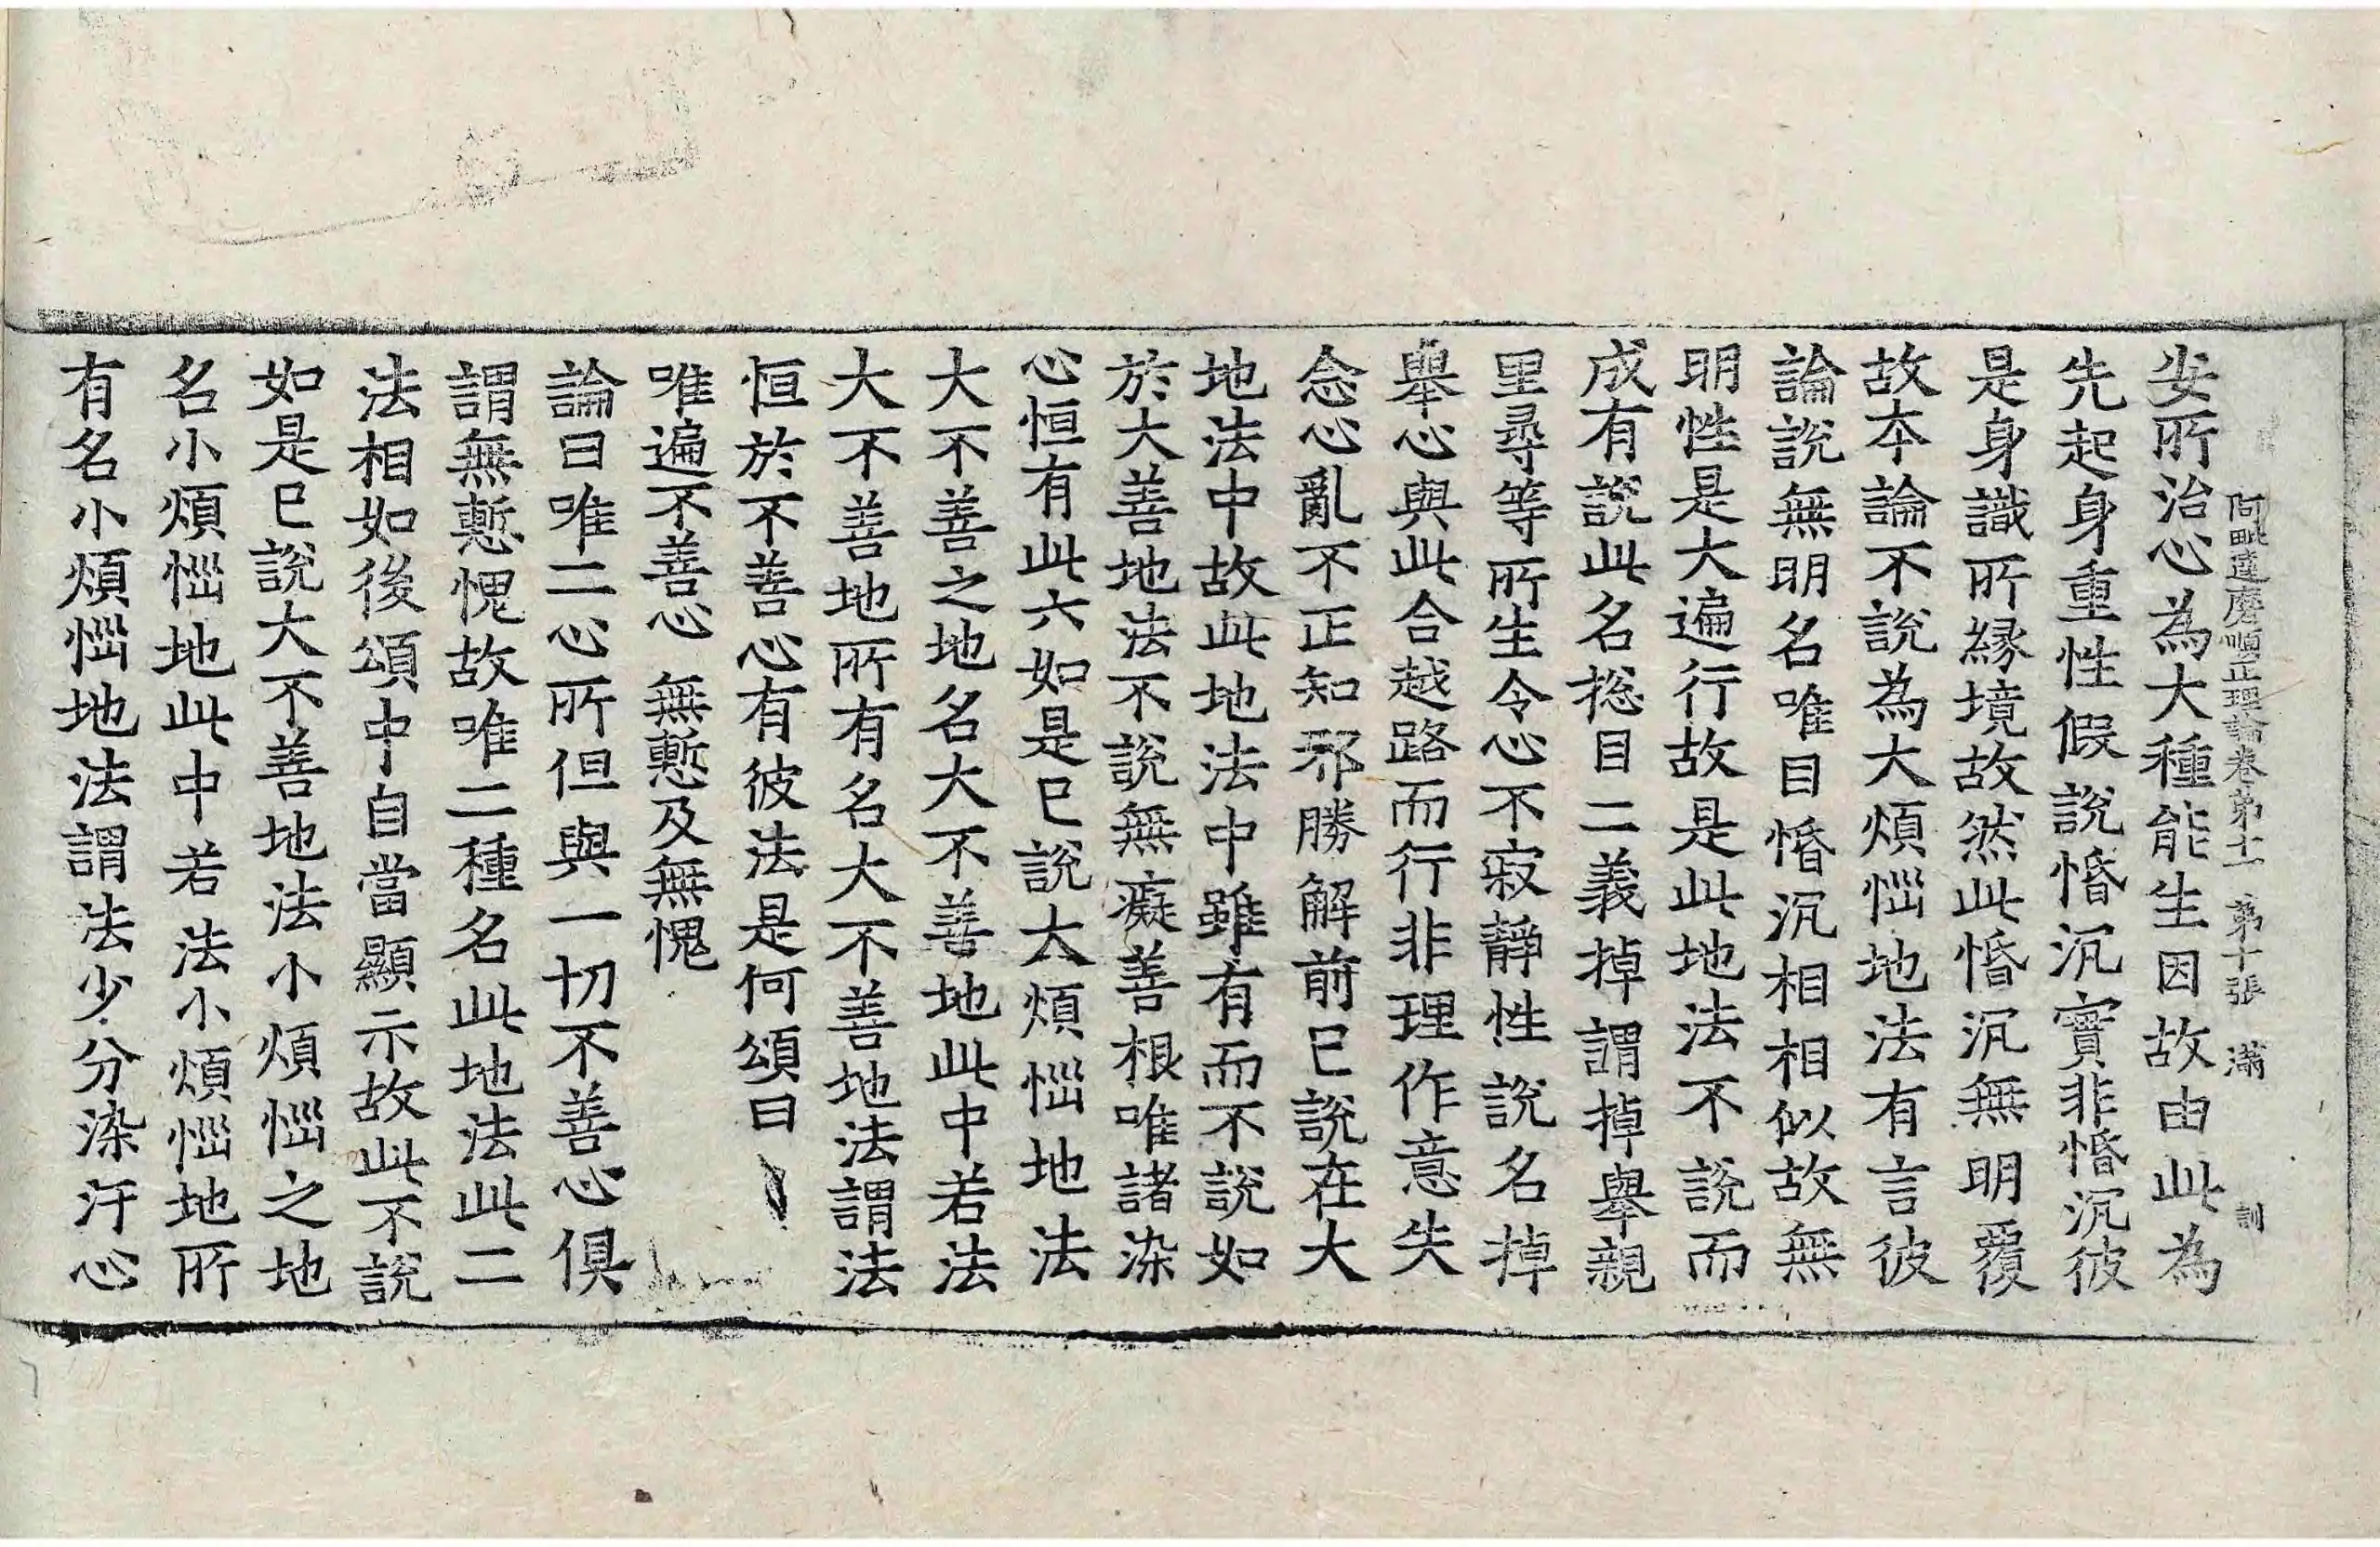 阿毗達磨順正理論卷第十一 第十張 滿 訓
安所治心為大種能生因故由此為
先起身重性假說惛沉實非惛沉彼
是身識所緣境故然此惛沉無明覆
故本論不說為大煩惱地法有言彼
論說無明名唯目惛沉相相似故無
明性是大遍行故是此地法不說而
成有說此名惣目二義掉謂掉舉親
里尋等所生令心不寂靜性說名掉
舉心與此合越路而行非理作意失
念心亂不正知邪勝解前已說在大
地法中故此地法中雖有而不說如
於大善地法不說無癡善根唯諸染
心恒有此六如是已說大煩惱地法
大不善之地名大不善地此中若法
大不善地所有名大不善地法謂法
恒於不善心有彼法是何頌曰
唯遍不善心 無慙及無愧
論曰唯二心所但與一切不善心俱
謂無慙愧故唯二種名此地法此二
法相如後頌中自當顯示故此不說
如是已說大不善地法小煩惱之地
名小煩惱地此中若法小煩惱地所
有名小煩惱地法謂法少分染汙心